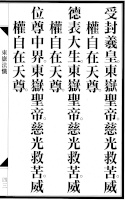 受封羲皇。東嶽聖帝。慈光救苦。威
權自在天尊
德表大生。東嶽聖帝。慈光救苦。威
權自在天尊
位尊中界。東嶽聖帝。慈光救苦。威
權自在天尊
東嶽法懺